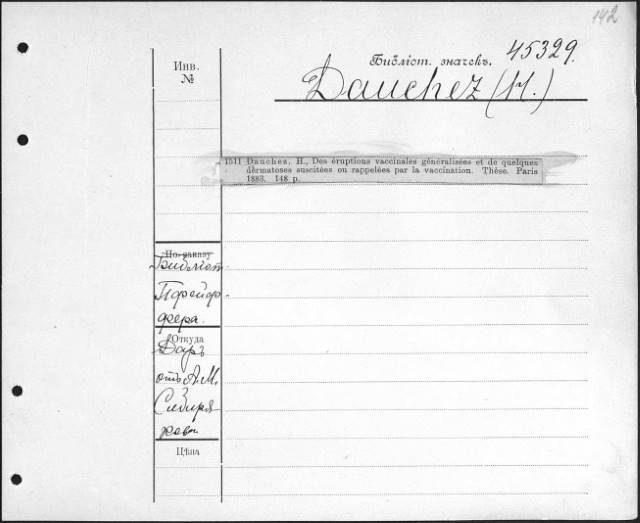 142
Библіот. значекъ. 45329.
Dauchez (H.)
Инв.
№
1511 Dauchez, H., Des éruptions vaccinales généralisées et de quelques
dermatoses suscitées ou rappelées par la vaccination. Thèse. Paris
1883. 148 p.
По заказу
Библіот.
Пфейф-
фера
Откуда
Даръ
отъ А.М.
Сибиря
кова
Цѣна